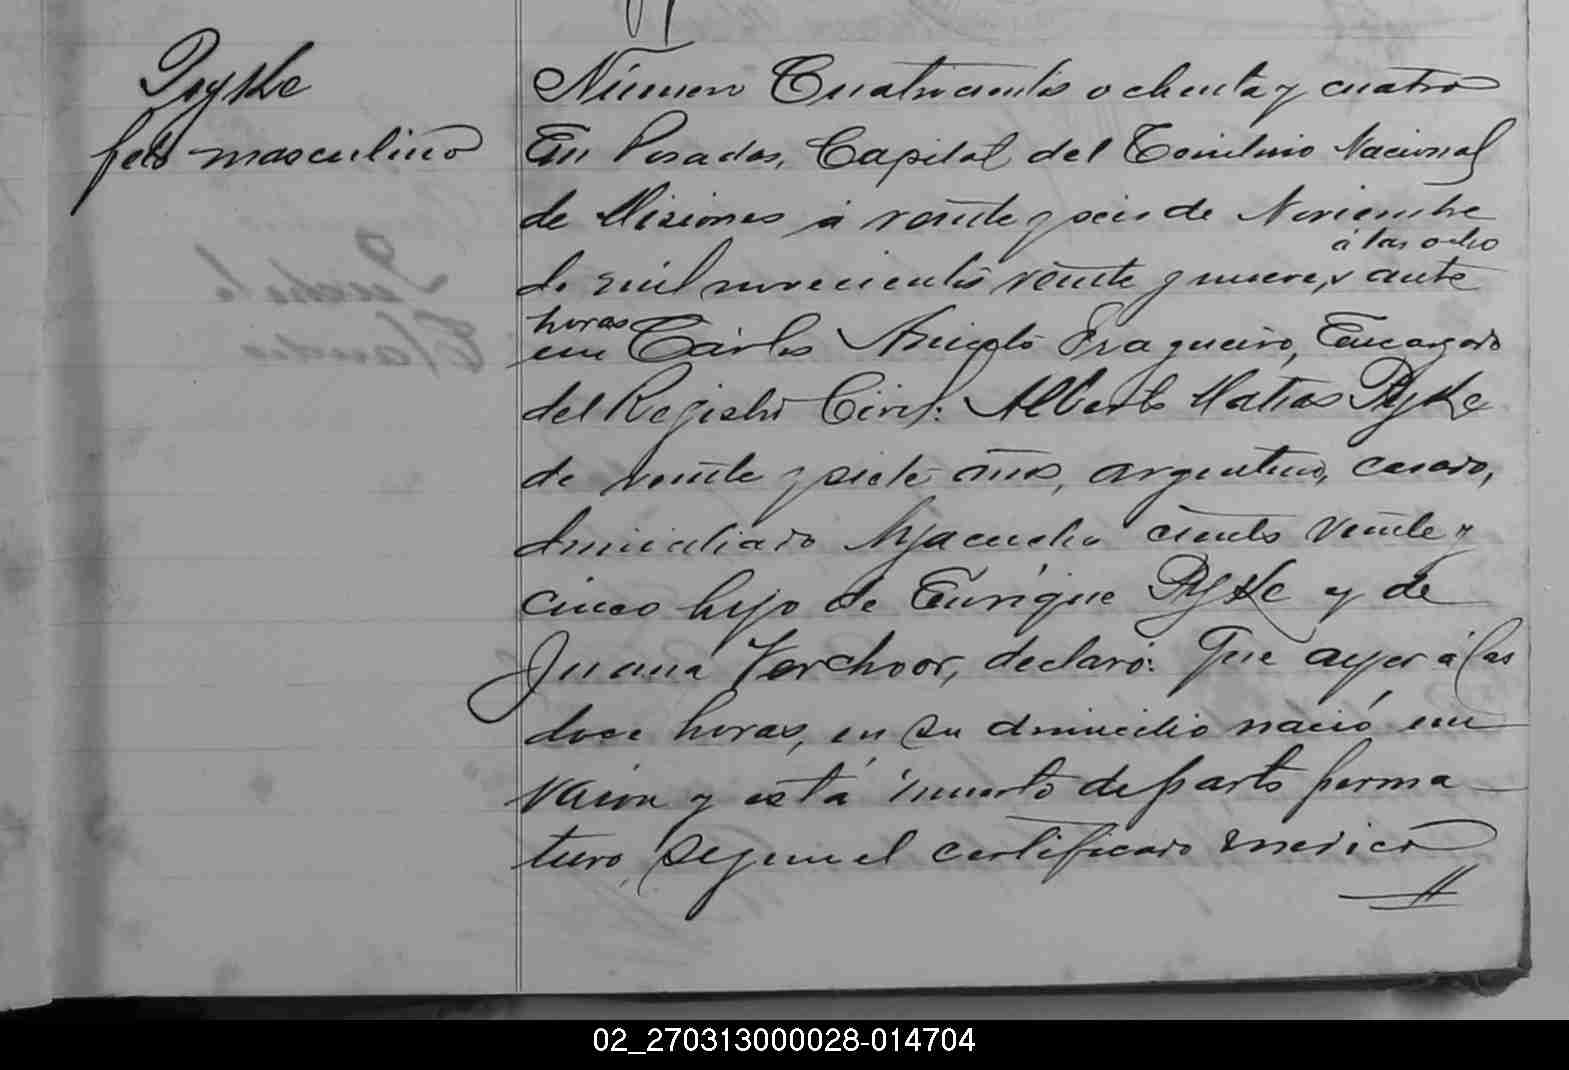 Pryske
feto masculino
Número Cuatrocientos ochenta y cuatro
En Posadas, Capital del Territorio Nacional
de Misiones á veinte y seis de Noviembre
á las ocho
de mil novecientos veinte y nueve, ante
horas
mi Cárlos Aniceto Fragueiro, Encargado
del Registro Civil: Alberto Matias Pryske
de veinte y siete años, argentino, casado,
domiciliado Ayacucho ciento veinte y
cinco hijo de Enrique Pryske y de
Juana Verchoor, declaró: Que ayer á las
doce horas, en su domicilio nació un
varon y está muerto de parto perma
turo, segun el certificado medico
02_270313000028-014704